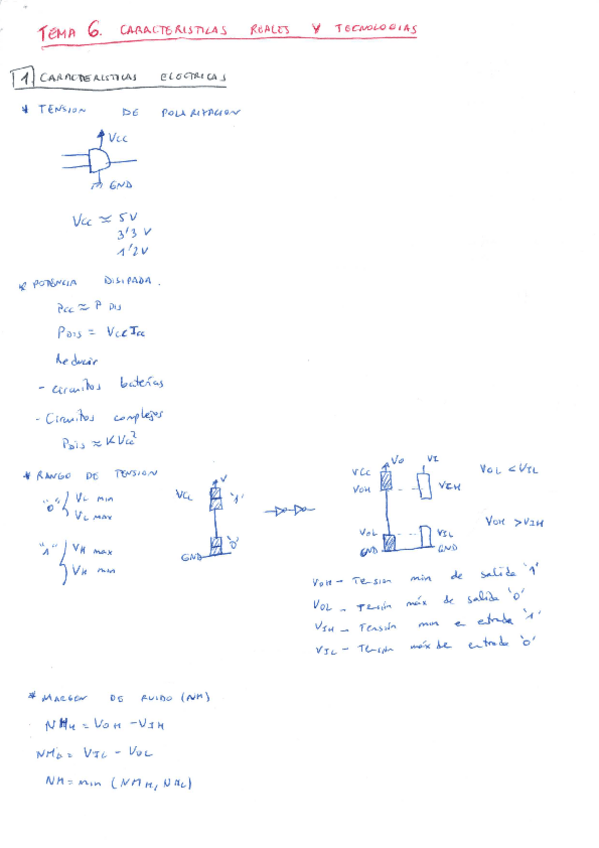 TEMA 6. CARACTERISTICAS REALES Y TECNOLOGIAS
1 CARACTERISTICAS ELECTRICAS
* TENSION DE POLARIZACION
Vcc
GND
Vcc ≈ 5V
3'3 V
1'2V
* POTENCIA DISIPADA.
Pcc ≈ P DIS
PDIS = Vcc Icc
Reducir
- Circuitos baterias
- Circuitos complejos
PDIS ≈ K Vcc²
* RANGO DE TENSION
"0" { VL min
VL max
"1" { VH max
VH min
V
Vcc "1"
GND "0"
Vo VI
Vcc
VOH VIH
VOL VIL
GND GND
VOL < VIL
VOH > VIH
VOH - Tensión min de salida '1'
VOL - Tensión máx de salida '0'
VIH - Tensión min e entrada '1'
VIL - Tensión máx de entrada '0'
* MARGEN DE RUIDO (NM)
NMH = VOH - VIH
= VIL - VOL
NM = min (NMH, NML)